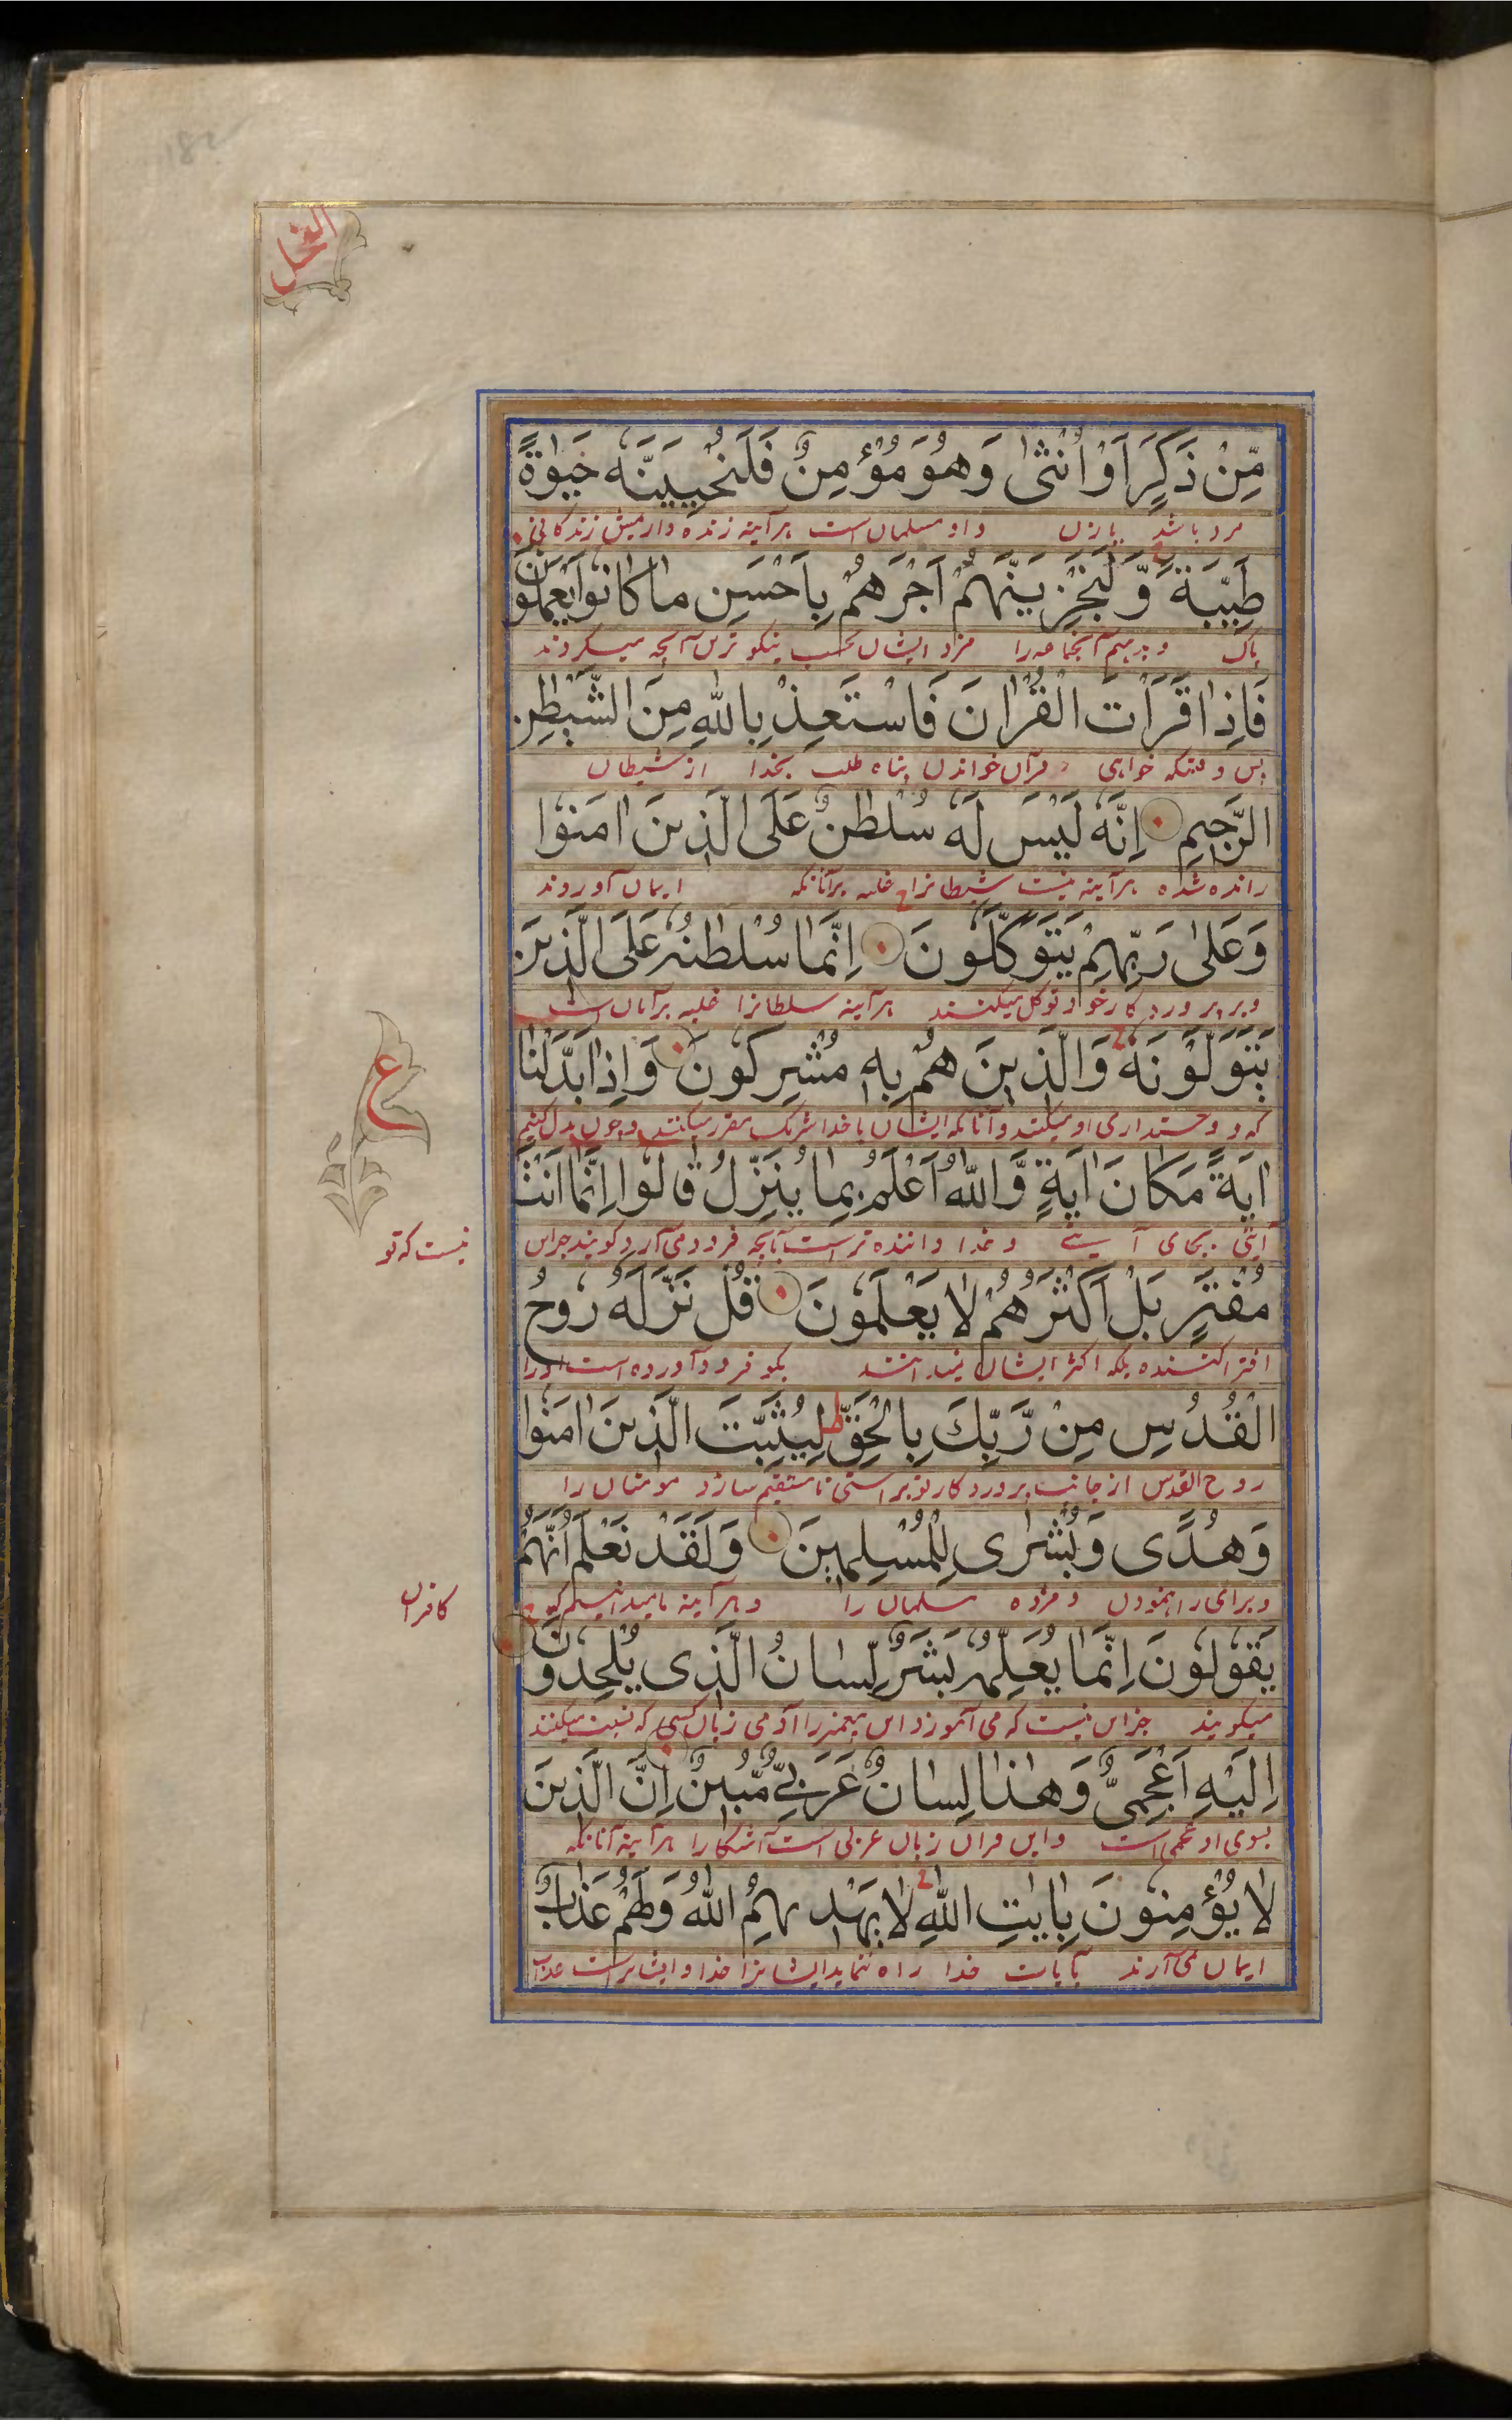 النحل
مِّنْ ذَكَرٍ اَوْ اُنْثٰى وَهُوَ مُؤْمِنٌ فَلَنُحْيِيَنَّهٗ حَيٰوةً
مرد باشد یا زن و او مسلمان است هر آینه زنده داریمش زندگانی
طَيِّبَةً وَّلَنَجْزِيَنَّهُمْ اَجْرَهُمْ بِاَحْسَنِ مَا كَانُوْا يَعْمَلُوْنَ
پاک و بدهیم آنجماعه را مزد ایشان بحسب نیکو ترین آنچه میکردند
فَاِذَا قَرَاْتَ الْقُرْاٰنَ فَاسْتَعِذْ بِاللّٰهِ مِنَ الشَّيْطٰنِ
پس وقتیکه خواهی قرآن خواندن پناه طلب بخدا از شیطان
الرَّجِيْمِ اِنَّهٗ لَيْسَ لَهٗ سُلْطٰنٌ عَلَى الَّذِيْنَ اٰمَنُوْا
رانده شده هر آینه نیست شیطانرا غلبه بر آنانکه ایمان آوردند
وَعَلٰى رَبِّهِمْ يَتَوَكَّلُوْنَ اِنَّمَا سُلْطٰنُهٗ عَلَى الَّذِيْنَ
و بر پروردکار خود توکل میکنند هر آینه سلطانرا غلبه بر آنان است
يَتَوَلَّوْنَهٗ وَالَّذِيْنَ هُمْ بِهٖ مُشْرِكُوْنَ وَاِذَا بَدَّلْنَا
ع
که دوستداری او میکنند و آنانکه ایشان با خدا شریک مقرر میکنند و چون بدل کنیم
اٰيَةً مَّكَانَ اٰيَةٍ وَّاللّٰهُ اَعْلَمُ بِمَا يُنَزِّلُ قَالُوْا اِنَّمَا اَنْتَ
آیتی بجای آیتی و خدا داننده تر است بآنچه فرود می آرد کویند جز این
نیست که تو
مُفْتَرٍ بَلْ اَكْثَرُهُمْ لَا يَعْلَمُوْنَ قُلْ نَزَّلَهٗ رُوْحُ
افترا کننده بلکه اکثر ایشان نمیدانند بکو فرود آورده است او را
الْقُدُسِ مِنْ رَّبِّكَ بِالْحَقِّ لِيُثَبِّتَ الَّذِيْنَ اٰمَنُوْا
روح القدس از جانب پروردکار تو براستی تا مستقیم سازد مومنان را
وَهُدًى وَبُشْرٰى لِلْمُسْلِمِيْنَ وَلَقَدْ نَعْلَمُ اَنَّهُمْ
و برای راه نمودن و مژده مسلمان را و هر آینه ما میدانیم که
کافران
يَقُوْلُوْنَ اِنَّمَا يُعَلِّمُهٗ بَشَرٌ لِّسَانُ الَّذِىْ يُلْحِدُوْنَ
میکویند جز این نیست که می آموزد این پیغمبر را آدمی زبان کسی که نسبت میکنند
اِلَيْهِ اَعْجَمِىٌّ وَهٰذَا لِسَانٌ عَرَبِىٌّ مُّبِيْنٌ اِنَّ الَّذِيْنَ
بسوی او عجمی است و این قرآن زبان عربی است آشکارا هر آینه آنانکه
لَا يُؤْمِنُوْنَ بِاٰيٰتِ اللّٰهِ لَا يَهْدِيْهِمُ اللّٰهُ وَلَهُمْ عَذَابٌ
ایمان نمی آرند بآیات خدا راه ننماید ایشانرا خدا و ایشانراست عذاب